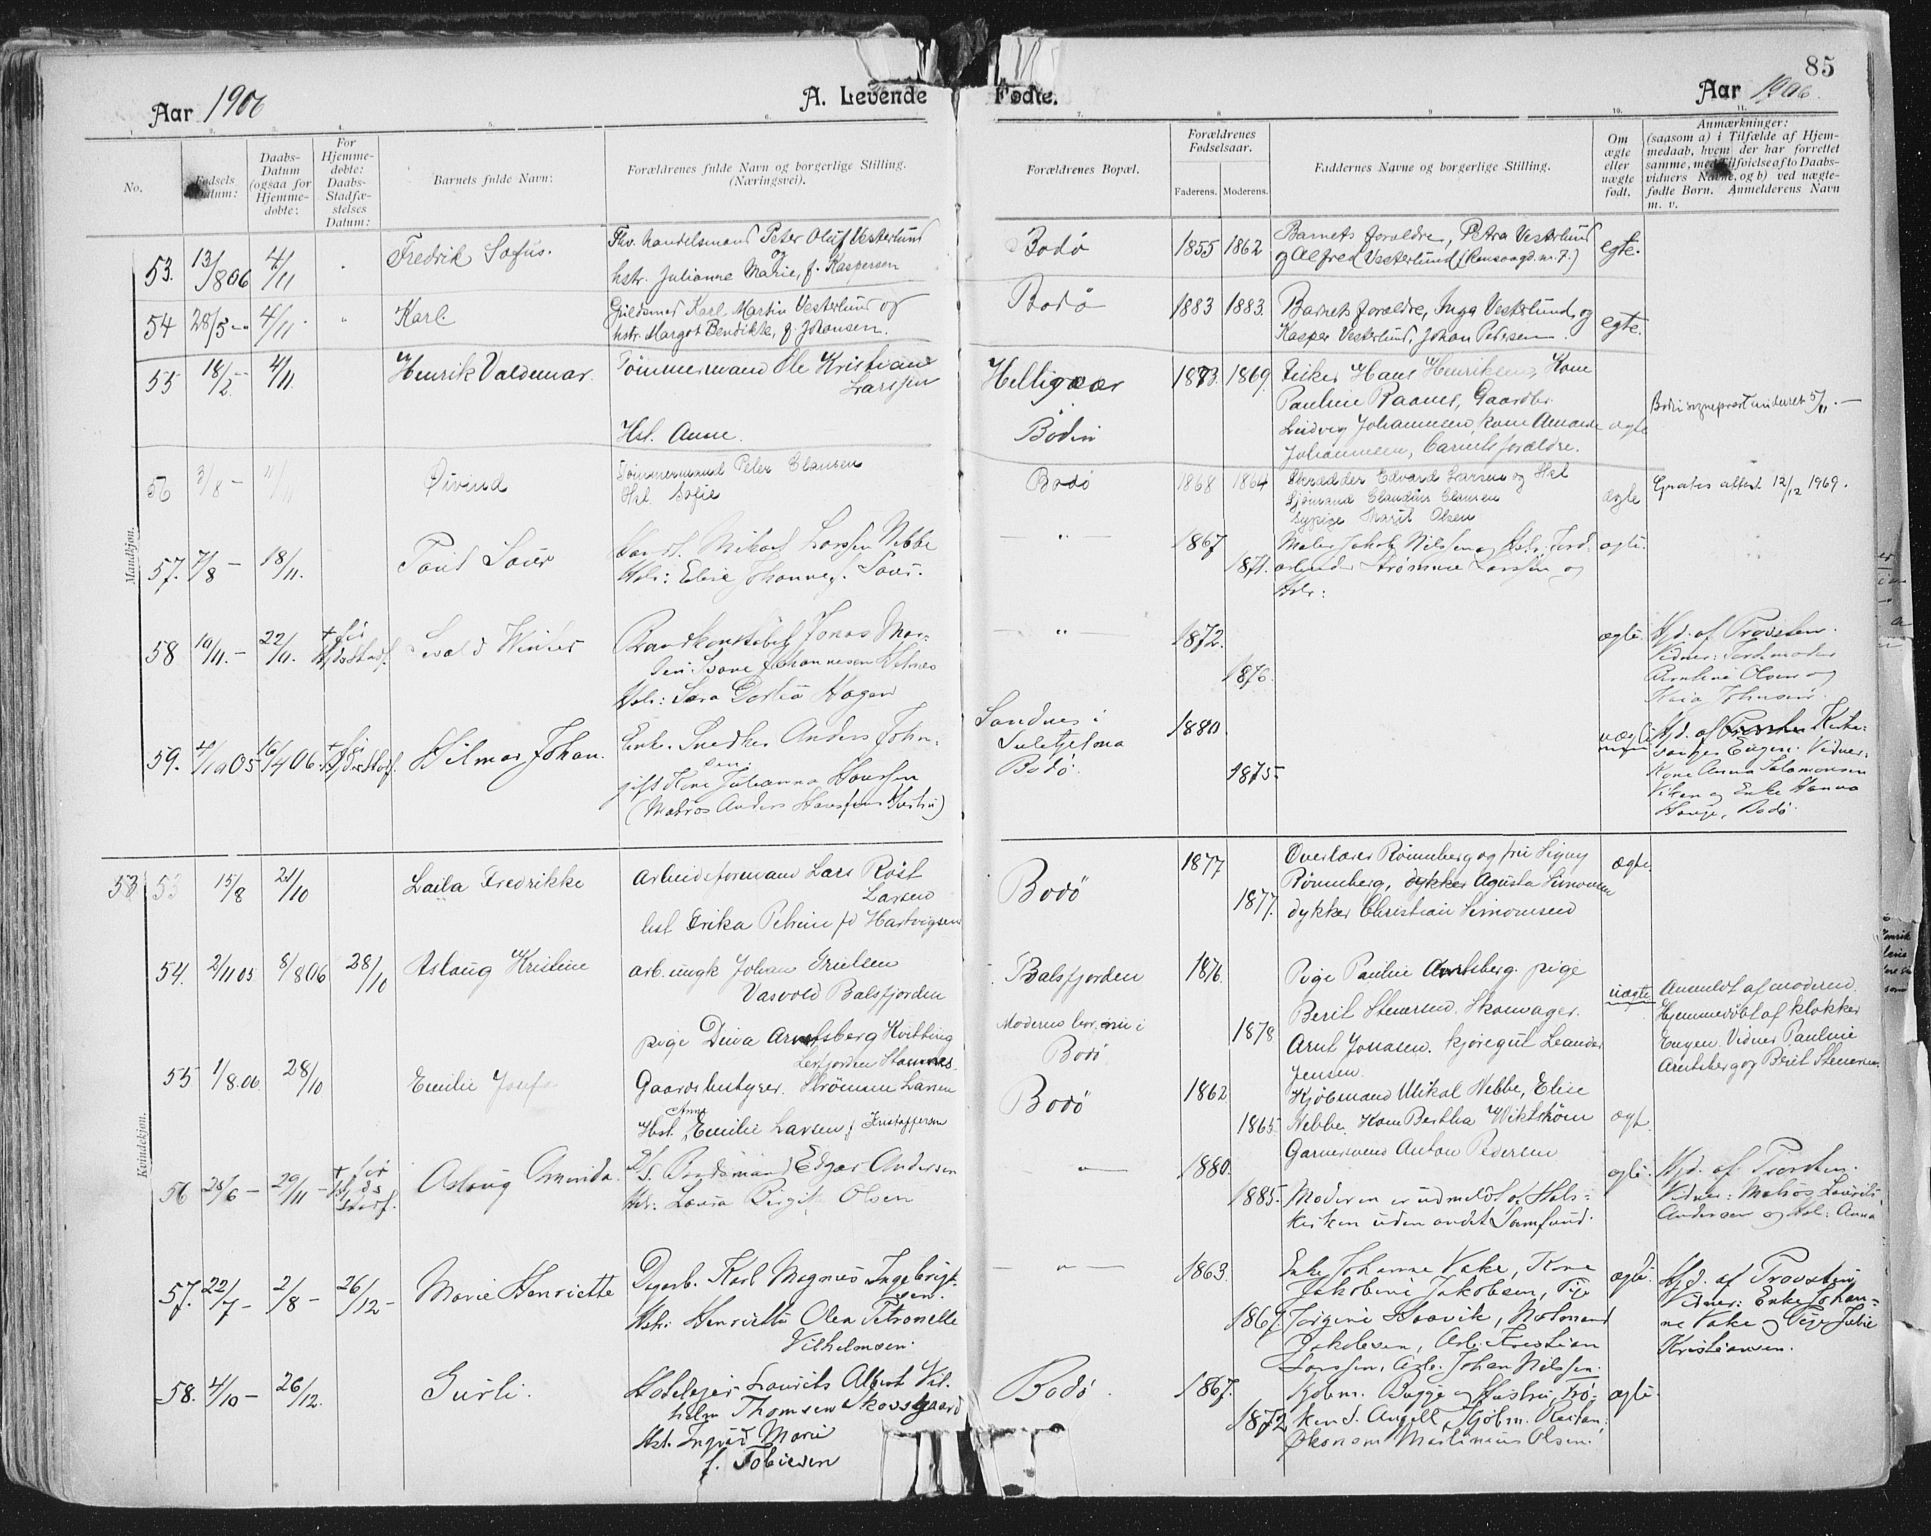 85
Aar 1906
A. Levende Fødte.
Aar 1906.
1. 2. 3. 4. 5. 6. 7. 8. 9. 10. 11.
No.
Fødsels Datum:
Daabs-Datum (ogsaa for Hjemmedøbte:
For Hjemmedøbte: Daabs-Stadfæstelses Datum:
Barnets fulde Navn:
Forældrenes fulde Navn og borgerlige Stilling. (Næringsvei).
Forældrenes Bopæl.
Forældrenes Fødselsaar.
Faderens. Moderens.
Faddernes Navne og borgerlige Stilling.
Om ægte eller uægte født.
Anmærkninger: (saasom a) i Tilfælde af Hjemmedaab, hvem der har forrettet samme, med Tilføielse af to Daabsvidners Navne, og b) ved uægtefødte Børn. Anmelderens Navn m. v.
Mandkjøn.
53. 13/8 06 4/11 Fredrik Sofus.
Fhv. handelsmand Peter Oluf Vesterlund og
hstr. Julianne Marie, f. Kaspersen
Bodø 1855 1862
Barnets forældre, Petra Vesterlund
og Alfred Vesterlund
egte.
54 28/5 4/11 Karl
Guldsmed Karl Martin Vesterlund og
hstr. Margot Bendikte, f. Johansen.
Bodø 1883 1883.
Barnets forældre, Inga Vesterlund, og
Kasper Vesterlund, Johan Pedersen
egte.
55 18/2 4/11 Henrik Valdemar.
Tømmermand Ole Kristian
Larssen
Hst. Anne.
Helligvær
Bodin
1873. 1869.
Fisker Hans Henriksen, Kone
Pauline Raanes, Gaardbr.
Ludvig Johannesen, kone Amanda
Johannesen, Barnets forældre.
ægte
Bodin sogneprest underret 5/11.
56 3/8 4/11 Øivind
Tømmermand Peter Clausen
Hst. Sofie
Bodø 1868 1864
Skrædder Edvard Larsen og Hst
Sjømand Claudius Clausen
Sypige Marit Olsen
ægte
Gratis attest 12/12 1969.
57. 7/8 18/11.
Mikael Larsen Nebbe
Hstr: Elise
1867 1871.
Maler Jakob Nilsen og Hstr,
Strømme Larssen og
Hstr:
ægte.
58 10/11 22/11 Winter
Brandkonstabel Jonas
Johannesen
Hstr: Sara Hagen
1872. 1876.
ægte
Hjd. af Provsten.
Vidner: Jordmoder
Olsen og
Kaia Johnsen.
59. 4/1905 16/4 06. Hilmar Johan.
Enkem. Snedker Anders John-
sen.
gift Kone Julianna Hanssen
(Matros Anders Hanssens Hustru)
Sandnes i
Sulitjelma
Bodø.
1880 1875.
uægte
Hjd. af Kirke-
sanger Eugen. Vidner:
Kone Anna Salomonsen
og Enke Hanna
Hauge, Bodø.
Kvindekjøn.
53 53 15/8 21/10 Laila Fredrikke
Arbeidsformand Lars Røst
Larsen
hst Erika Petrine fd Hartvigsen
Bodø 1877 1877.
Overlærer Rønneberg og fru Signy
Rønneberg, dykker Agusta Simonsen
dykker Christian Simonsen
ægte.
54. 2/11 05 8/8 06 28/10 Aslaug Kristine
arb. ungk Johan
Vasvold Balsfjorden
pige Dina Arntsberg Kvitting
Leirfjorden Stamnes.
Balsfjorden
Moderns bor. nu i
Bodø
1876. 1878
Pige Pauline Arntsberg. pige
Berit Stenersen. Skomager
Arnt Jonasen. kjøregut Leander
Jensen.
uægte
Anmeldt af moderen.
Hjemmedøbt af klokker
Eugen. Vidner Pauline
Arntsberg og Berit Stenersen.
55 1/8.06. 28/10 Emilie
Gaardsbestyrer. Strømme Larsen
Hst. Anna Emilie Larsen f Kristoffersen
Bodø 1862 1865.
Kjøbmand Mikal Nebbe, Elise
Nebbe. Kone Bertha Wikstrøm
Garversvend Anton Pedersen
ægt.
56 25/6 29/11 Aslaug
Edgar Andersen
Hstr: Laura Birgit Olsen
1880. 1885.
Moderen er udmeldt af Stats-
kirken uden andet Samfund.
ægte.
Hjd. af Provsten.
Vidner: Matros Laurits
Andersen og Hst: Anna
57. 22/7 2/8 26/12 Marie Henriette
Dagarb. Karl Magnus Ingebrigt-
sen.
Hstr: Henriette Olea Petronelle
Vilhelmsen.
1863. 1867.
Enke Johanne Vake, Kone
Jakobine Jakobsen, Pige
Jørgine Haavik, Notmand
Jakobsen, Arb. Kristian
Larssen, Arb. Johan Nilsen.
ægte.
Hjd. af Provsten
Vidner: Enke Johan-
ne Vake og Pige Julie
Kristiansen.
58. 4/10 26/12. Gurli.
Hoteleier Laurits Albert Vil-
helm Thomsen Skovsgaard
Hst. Ingrid Marie
f. Tobiesen
Bodø. 1867. 1872
Kjøbm. Bugge og Hustru, Frø-
ken S. Angell, Kjøbm.
Økonom Martinius Olsen.
ægte.